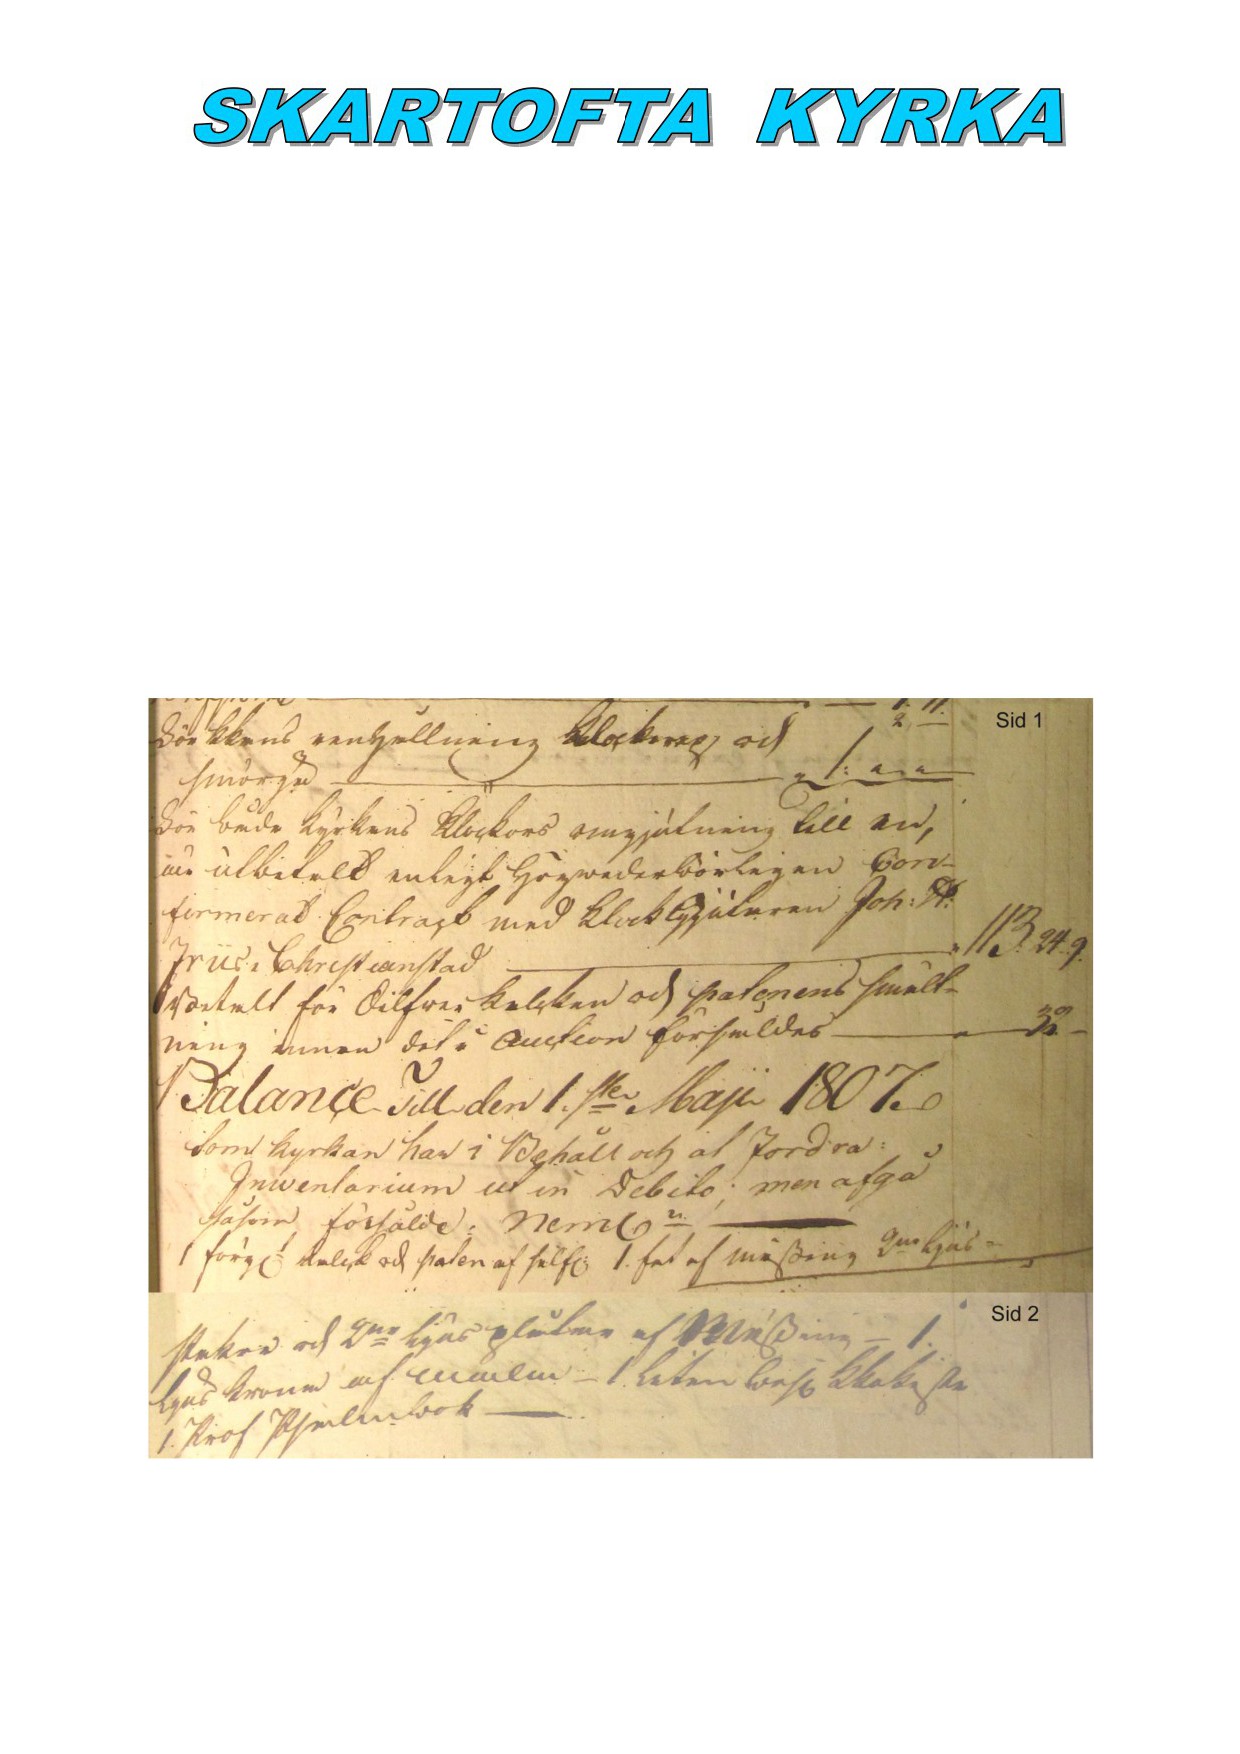 SKARTOFTA KYRKA
Sid 1
För klockans renhållning och
smörja 1:
För både kyrkans klockors omgjutning till en,
är utbetalt enligt Högwederbörligen Con-
firmerat Contract med klockgjutaren Joh:
Christianstad 113. 24. 9.
Betalt för Silfver kalken och patenens smält-
ning innan det i Auction försåldes 32.
Balance till den 1.ste Maji 1807.
som kyrkan har i Behåll och at fordra:
Inventarium ut in Debito; men afgå
såsom försålde: neml.n
1 förg.t kalk och paten af silf. 1. fat af mässing 2ne ljus-
Sid 2
stakar och 2ne ljus plåtar af Mässing – 1.
ljus krona af malm – 1. liten
1. Prof Psalmbok